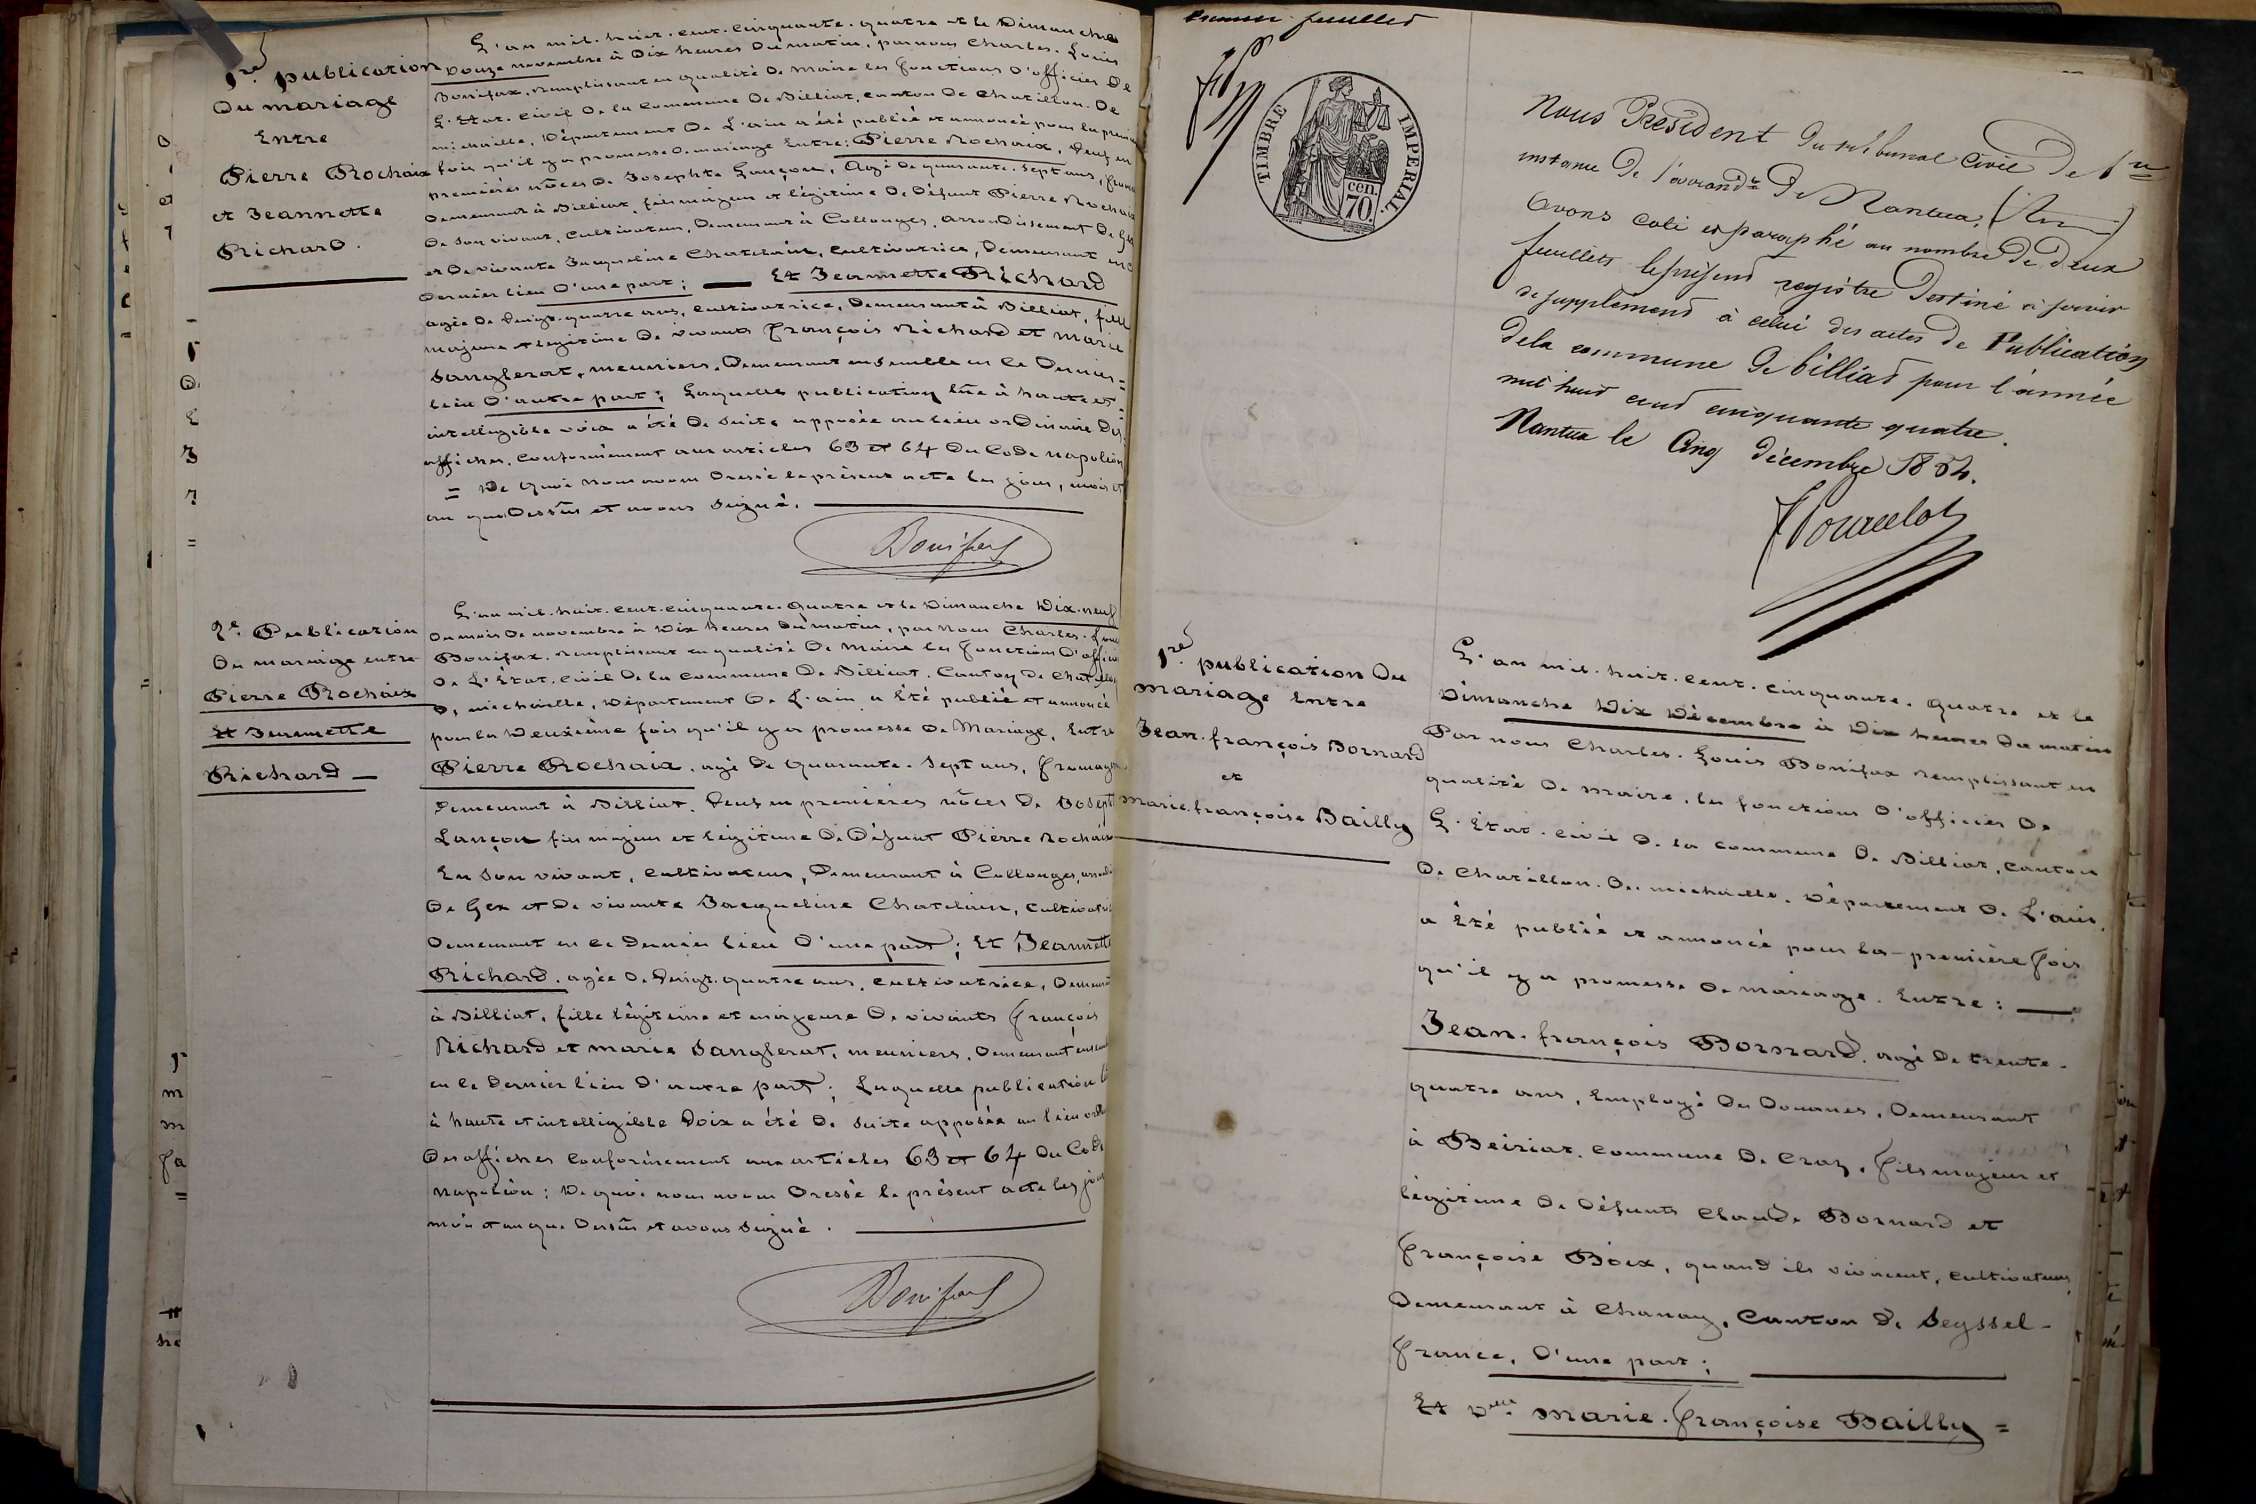 1re publication
Du mariage
Entre
Pierre Rochaix
et Jeannette
Richard.
L'an mil-huit-cent-cinquante-quatre et le Dimanche
Douze novembre à Dix heures Du matin, par nous Charles-Louis
Bonifax, remplissant en qualité De Maire les fonctions D'officier De
L'Etat-civil De la Commune De Billiat, canton De Chatillon-De
michaille, Département De L'ain a été publié et annoncé pour la première
fois qu'il y a promesse De mariage Entre: Pierre Rochaix, Veuf en
premières nôces De Josephte Lançon, Agé De quarante-sept ans,
Demeurant à Billiat, fils majeur et légitime De Défunt Pierre Rochaix
De son vivant, Cultivateur, Demeurant à Collonges, arrondissement De Gex
et De vivante Jacqueline Chatelain, Cultivatrice, Demeurant en ce
Dernier lieu D'une part; Et Jeannette Richard
agée De Vingt-quatre ans, Cultivatrice, Demeurant à Billiat, fille
majeure et légitime De vivants François Richard et Marie
Sanglerat, meuniers, Demeurant ensemble en ce Dernier =
lieu D'autre part; Laquelle publication lue à haute et
intelligible voix a été De suite apposée au lieu ordinaire Des
affiches, Conformément aux articles 63 et 64 Du Code napoléon
= De quoi nous avons Dressé le présent acte les jour, mois et
an que Dessus et avons Signé.
Bonifax
2e Publication
Du mariage entre
Pierre Rochaix
Et Jeannette
Richard
L'an mil-huit-cent-cinquante-quatre et le Dimanche Dix-neuf
Du mois De novembre à Dix heures Du matin, par nous Charles-Louis
Bonifax, remplissant en qualité De Maire les fonctions D'officier
De L'Etat-civil De la Commune De Billiat, Canton De Chatillon
De michaille, Département De L'ain a Eté publié et annoncé
pour la Deuxième fois qu'il y a promesse De Mariage, Entre
Pierre Rochaix, agé De Quarante-Sept ans, fromager
Demeurant à Billiat, Veuf en premières nôces De Josephte
Lançon fils majeur et légitime De Défunt Pierre Rochaix
En Son vivant, Cultivateur, Demeurant à Collonges,
De Gex et De vivante Jacqueline Chatelain, Cultivatrice
Demeurant en ce Dernier lieu D'une part; Et Jeannette
Richard, agée De Vingt-quatre ans, Cultivatrice, Demeurant
à Billiat, fille légitime et majeure De vivants François
Richard et marie Sanglerat, meuniers, Demeurant ensemble
en ce Dernier lieu D'autre part; Laquelle publication lue
à haute et intelligible Voix a été De suite apposée au lieu ordinaire
Des affiches Conformément aux articles 63 et 64 Du Code
napoléon; De quoi nous avons Dressé le présent acte les jour
mois et an que Dessus et avons Signé.
Bonifax
Premier feuillet
TIMBRE IMPERIAL.
70 cen.
Nous Président du tribunal Civil De 1re
instance De l'arrondt De Nantua, (Ain)
Avons coté et paraphé au nombre De Deux
feuillets le présent registre Destiné à servir
de supplément à celui des actes de Publication
De la commune De billiat pour l'année
mil huit cent cinquante quatre.
Nantua le Cinq Décembre 1854.
1re publication Du
mariage Entre
Jean-françois Bornard
et
Marie-françoise Bailly
L'an mil-huit-cent-cinquante-quatre et le
Dimanche Dix Décembre à Dix heures Du matin
Par nous Charles-Louis Bonifax remplissant en
qualité De maire, les fonctions D'officier De
L'Etat-civil De la Commune De Billiat, canton
De Chatillon-De-michaille, Département De L'ain,
a Eté publié et annoncé pour la première fois
qu'il y a promesse De mariage. Entre:
Jean-françois Bornard, agé De trente-
quatre ans, Employé Des Douanes, Demeurant
à Beiriat, Commune De Craz, fils majeur et
légitime De Défunts Claude Bornard et
françoise Boix, quand ils vivaient, cultivateurs,
Demeurant à Chanay, Canton De Seyssel-
France, D'une part;
Et Delle Marie-françoise Bailly =